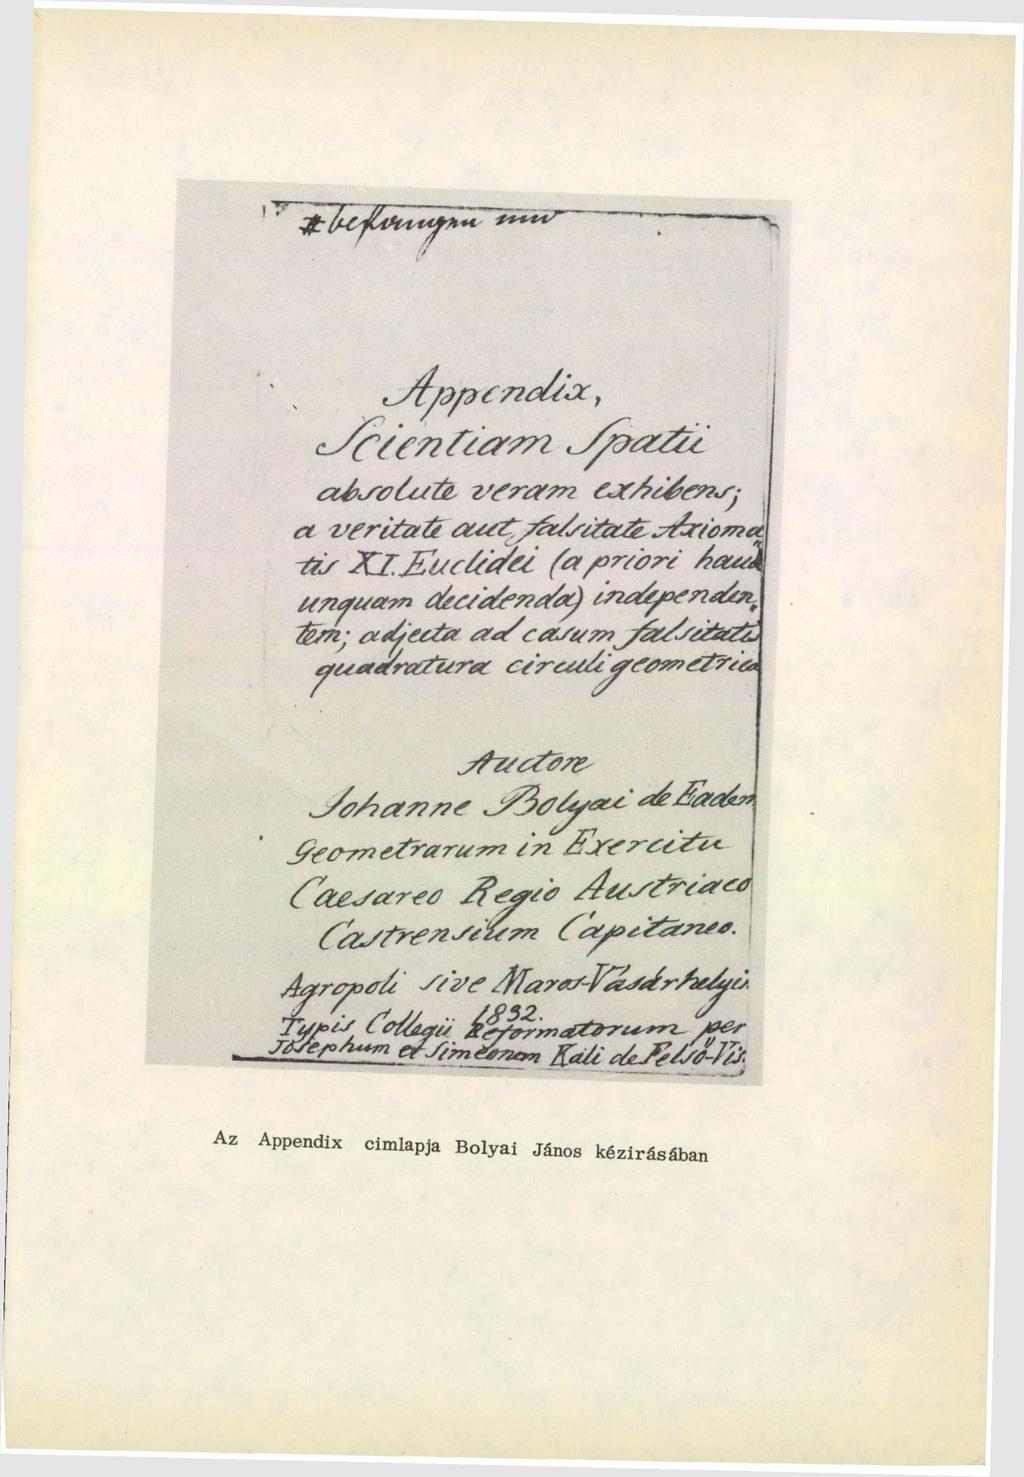 Appendix,
Scientiam Spatii
absolute veram exhibens;
a veritate aut falsitate Axioma„
tis XI. Euclidei (a priori haud
unquam decidenda) independen„
tem; adjecta ad casum falsitatis
quadratura circuli geometrica
Auctore
Johanne Bolyai de Eadem
Geometrarum in Exercitu
Caesareo Regio Austriaco
Castrensium Capitaneo.
Agropoli sive Maros-Vásárhelyii.
1832.
Typis Collegii Reformatorum per
Josephum et Simeonem Káli de Felső-Vis.
Az Appendix cimlapja Bolyai János kézirásában